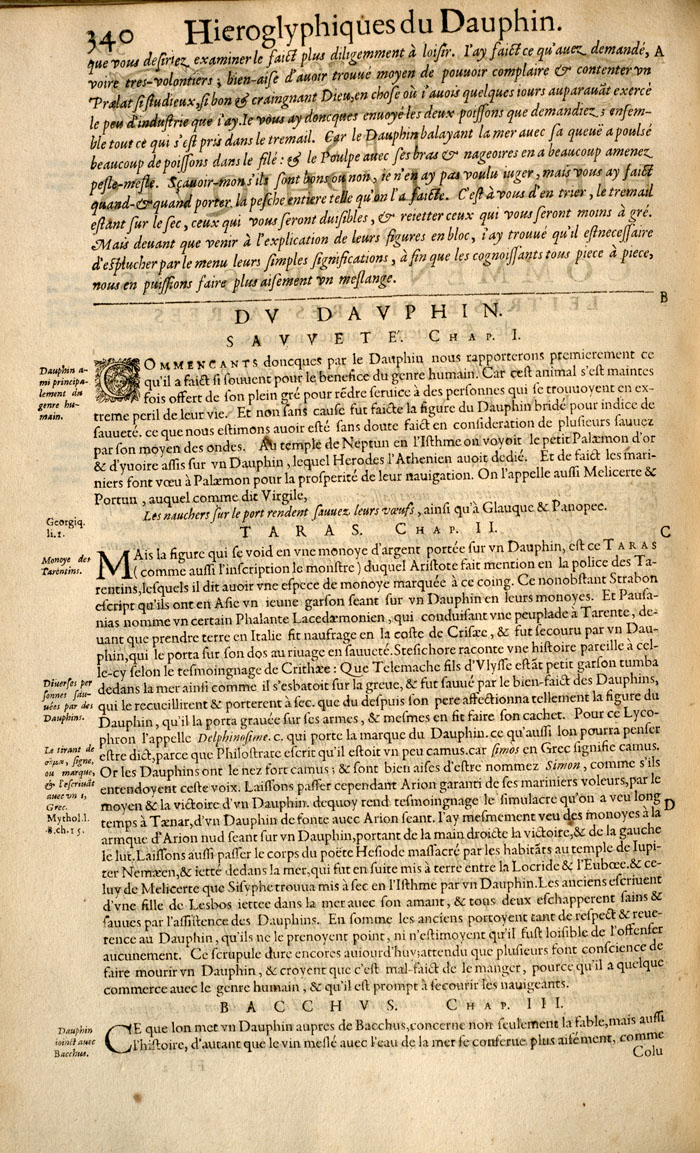 340 Hieroglyphiques du Dauphin.
que vous desiriez examiner le faict plus diligemment à loisir. I'ay faict ce qu'auez demandé, A
voire tres-volontiers ; bien-aise d'auoir trouué moyen de pouuoir complaire & contenter vn
Prælat si studieux, si bon & craingnant Dieu, en chose où i'auois quelques iours auparauāt exercé
le peu d'industrie que i'ay. Ie vous ay doncques enuoyé les deux poissons que demandiez ; ensem-
ble tout ce qui s'est pris dans le tremail. Car le Dauphin balayant la mer auec sa queuë a poulsé
beaucoup de poissons dans le filé : & le Poulpe auec ses bras & nageoires en a beaucoup amenez
pesle-mesle. Sçauoir-mon s'ils sont bons ou non, ie n'en ay pas voulu iuger, mais vous ay faict
quand-&-quand porter la pesche entiere telle qu'on l'a faicte. C'est à vous d'en trier, le tremail
estant sur le sec, ceux qui vous seront duisibles, & reietter ceux qui vous seront moins à gré.
Mais deuant que venir à l'explication de leurs figures en bloc, i'ay trouué qu'il est necessaire
d'esplucher par le menu leurs simples significations, à fin que les cognoissants tous piece à piece,
nous en puissions faire plus aisement vn meslange.
B
DV DAVPHIN.
SAVVETE. CHAP. I.
Dauphin a-
mi principa-
lement du
genre hu-
main.
COMMENCANTS doncques par le Dauphin nous rapporterons premierement ce
qu'il a faict si souuent pour le benefice du genre humain. Car cest animal s'est maintes
fois offert de son plein gré pour rēdre seruice à des personnes qui se trouuoyent en ex-
treme peril de leur vie. Et non sans cause fut faicte la figure du Dauphin bridé pour indice de
sauueté. ce que nous estimons auoir esté sans doute faict en consideration de plusieurs sauuez
par son moyen des ondes. Au temple de Neptun en l'Isthme on voyoit le petit Palæmon d'or
& d'yuoire assis sur vn Dauphin, lequel Herodes l'Athenien auoit dedié. Et de faict les mari-
niers font vœu à Palæmon pour la prosperité de leur nauigation. On l'appelle aussi Melicerte &
Portun, auquel comme dit Virgile,
Georgiq.
li.1.
Les nauchers sur le port rendent sauuez leurs vœufs, ainsi qu'à Glauque & Panopee.
TARAS. CHAP. II. C
Monoye des
Tarentins.
MAis la figure qui se void en vne monoye d'argent portée sur vn Dauphin, est ce TARAS
(comme aussi l'inscription le monstre) duquel Aristote fait mention en la police des Ta-
rentins, lesquels il dit auoir vne espece de monoye marquée à ce coing. Ce nonobstant Strabon
escript qu'ils ont en Asie vn ieune garson seant sur vn Dauphin en leurs monoyes. Et Pausa-
nias nomme vn certain Phalante Lacedæmonien, qui conduisant vne peuplade à Tarente, de-
uant que prendre terre en Italie fit naufrage en la coste de Crisæe, & fut secouru par vn Dau-
phin, qui le porta sur son dos au riuage en sauueté. Stesichore raconte vne histoire pareille à cel-
le-cy selon le tesmoingnage de Crithæe : Que Telemache fils d'Vlysse estāt petit garson tumba
Diuerses per
sonnes sau-
uées par des
Dauphins.
dedans la mer ainsi comme il s'esbatoit sur la greue, & fut sauué par le bien-faict des Dauphins,
qui le recueillirent & porterent à sec. que du despuis son pere affectionna tellement la figure du
Dauphin, qu'il la porta grauée sur ses armes, & mesmes en fit faire son cachet. Pour ce Lyco-
phron l'appelle Delphinosime. c. qui porte la marque du Dauphin. ce qu'aussi lon pourra penser
Le tirant de
σῆμα, signe,
ou marque,
& l'escriuāt
auec vn ι,
Grec.
Mythol.l.
8.ch.15.
estre dict, parce que Philostrate escrit qu'il estoit vn peu camus. car simos en Grec signifie camus.
Or les Dauphins ont le nez fort camus ; & sont bien aises d'estre nommez Simon, comme s'ils
entendoyent ceste voix. Laissons passer cependant Arion garanti de ses mariniers voleurs, par le
moyen & la victoire d'vn Dauphin. dequoy rend tesmoingnage le simulacre qu'on a veu long D
temps à Tænar, d'vn Dauphin de fonte auec Arion seant. I'ay mesmement veu des monoyes à la
armque d'Arion nud seant sur vn Dauphin, portant de la main droicte la victoire, & de la gauche
le lut. Laissons aussi passer le corps du poëte Hesiode massacré par les habitāts au temple de Iupi-
ter Nemæen, & iettée dedans la mer, qui fut en suite mis à terre entre la Locride & l'Eubœe. & ce-
luy de Melicerte que Sisyphe trouua mis à sec en l'Isthme par vn Dauphin. Les anciens escriuent
d'vne fille de Lesbos iettee dans la mer auec son amant, & tous deux eschapperent sains &
sauues par l'assistence des Dauphins. En somme les anciens portoyent tant de respect & reue-
rence au Dauphin, qu'ils ne le prenoyent point, ni n'estimoyent qu'il fust loisible de l'offenser
aucunement. Ce scrupule dure encores auiourd'huy : attendu que plusieurs font conscience de
faire mourir vn Dauphin, & croyent que c'est mal-faict de le manger, pource qu'il a quelque
commerce auec le genre humain, & qu'il est prompt à secourir les nauigeants.
BACCHVS. CHAP. III.
Dauphin
ioinct auec
Bacchus.
CE que lon met vn Dauphin aupres de Bacchus, concerne non seulement la fable, mais aussi
l'histoire, d'autant que le vin meslé auec l'eau de la mer se conserue plus aisément, comme
Colu